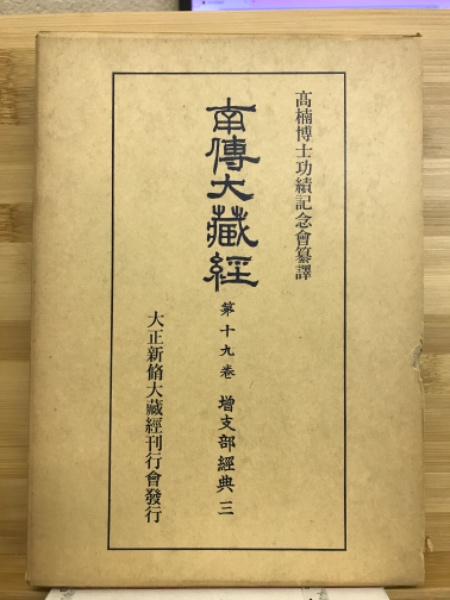 高楠博士功績記念會纂譯
南傳大藏經 第十九卷 增支部經典 三
大正新脩大藏經刊行會發行